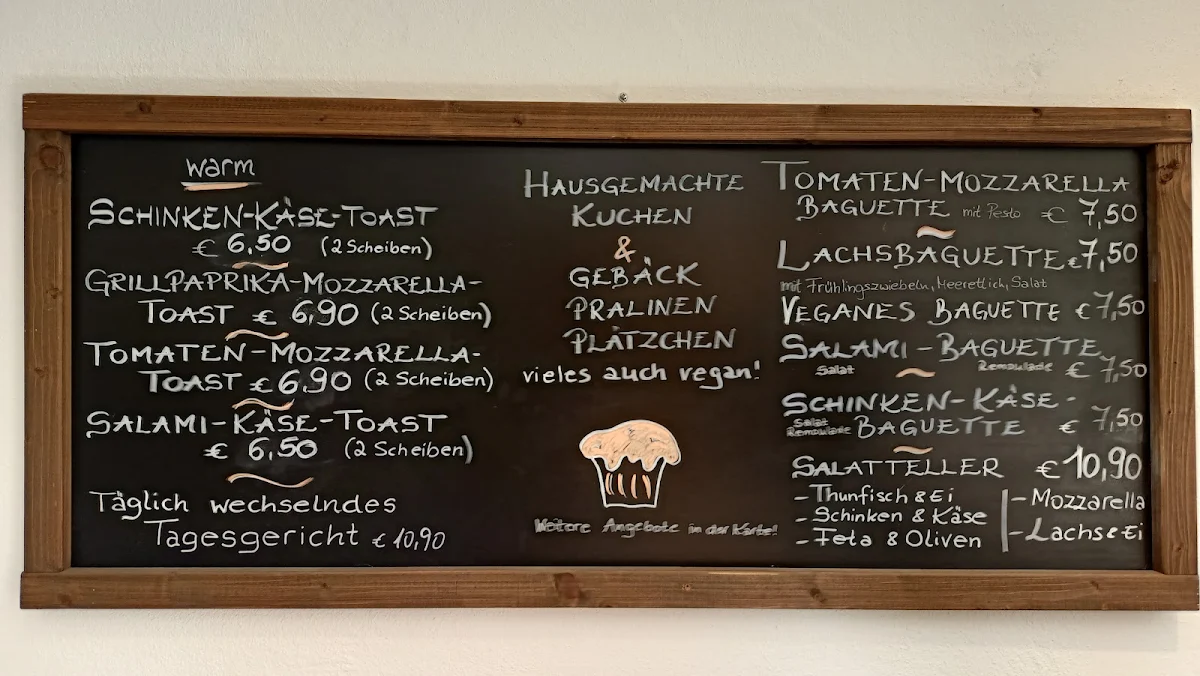 warm
SCHINKEN-KÄSE-TOAST
€ 6,50 (2 Scheiben)
GRILLPAPRIKA-MOZZARELLA-
TOAST € 6,90 (2 Scheiben)
TOMATEN-MOZZARELLA-
TOAST € 6,90 (2 Scheiben)
SALAMI-KÄSE-TOAST
€ 6,50 (2 Scheiben)
Täglich wechselndes
Tagesgericht € 10,90
HAUSGEMACHTE
KUCHEN
&
GEBÄCK
PRALINEN
PLÄTZCHEN
vieles auch vegan!
Weitere Angebote in der Karte!
TOMATEN-MOZZARELLA
BAGUETTE mit Pesto € 7,50
LACHSBAGUETTE € 7,50
mit Frühlingszwiebeln, Meerettich, Salat
VEGANES BAGUETTE € 7,50
SALAMI-BAGUETTE
Salat Remoulade € 7,50
SCHINKEN-KÄSE-
Salat
Remoulade BAGUETTE € 7,50
SALATTELLER € 10,90
- Thunfisch & Ei
- Schinken & Käse
- Feta & Oliven
- Mozzarella
- Lachs & Ei